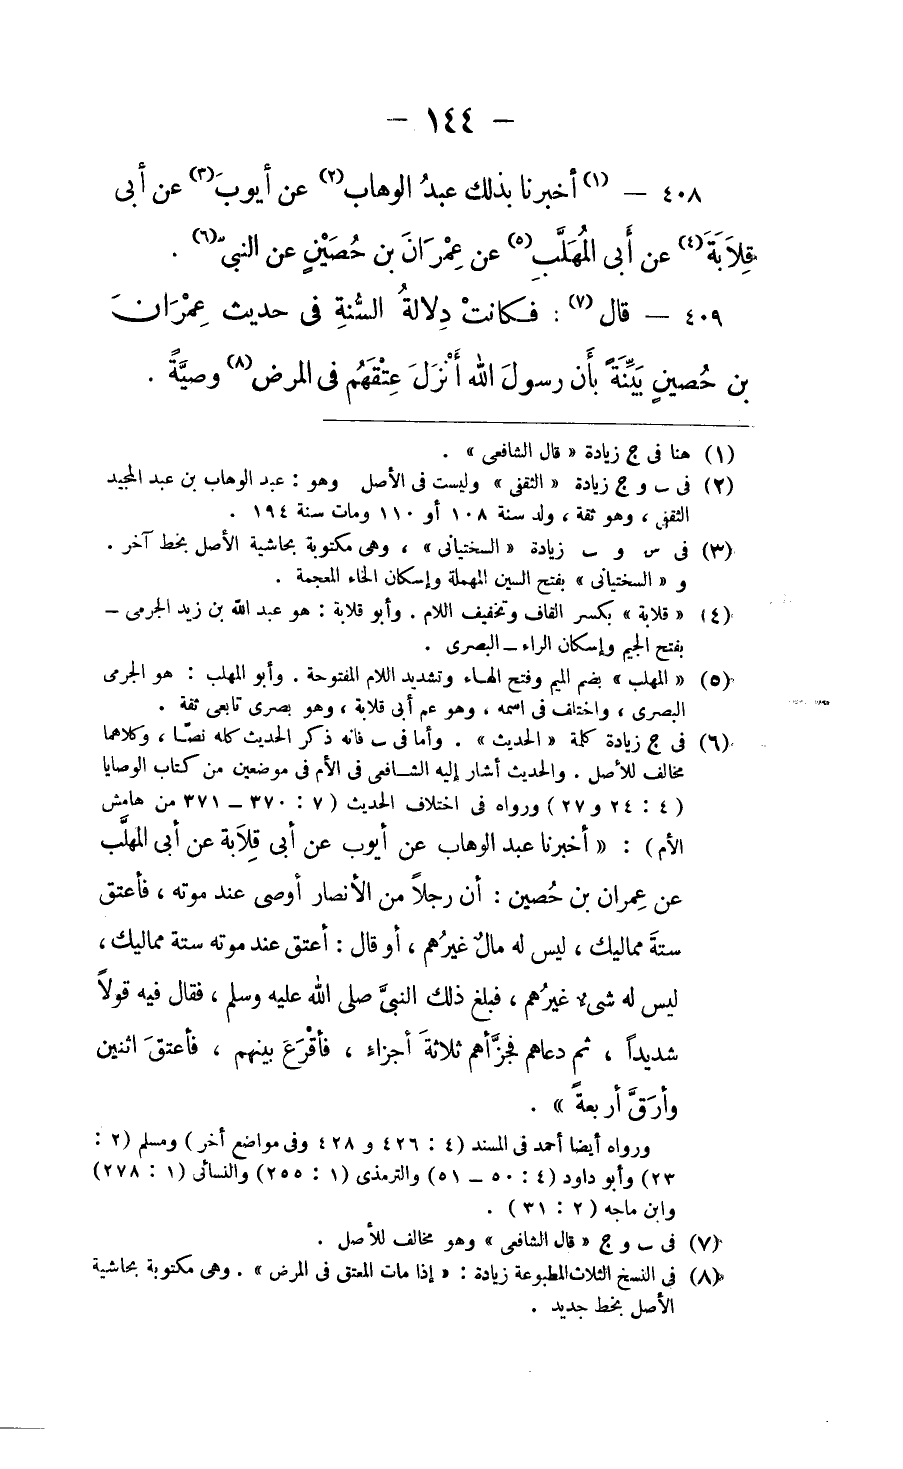 — ١٤٤ —
٤٠٨ — (١) أخبرنا بذلك عبدُ الوهاب(٢) عن أيوبَ(٣) عن أبى
قِلاَبَةَ(٤) عن أَبى المُهَلَّبِ(٥) عن عِمْرَانَ بن حُصَيْنٍ عن النبىّ(٦) .
٤٠٩ — قال(٧) : فكانتْ دِلالةُ السُّنةِ فى حديث عِمْرَانَ
بن حُصينٍ بَيِّنَةً بأَن رسولَ الله أَنْزَلَ عِتْقَهُم فى المرض(٨) وصيَّةً .
(١) هنا فى ج زيادة « قال الشافعى » .
(٢) فى ب و ج زيادة « الثقفى » وليست فى الأصل وهو : عبد الوهاب بن عبد المجيد
الثقفى ، وهو ثقة ، ولد سنة ١٠٨ أو ١١٠ ومات سنة ١٩٤ .
(٣) فى س و ب زيادة « السختيانى » ، وهى مكتوبة بحاشية الأصل بخط آخر .
و « السختيانى » بفتح السين المهملة وإسكان الخاء المعجمة .
(٤) « قلابة » بكسر القاف وتخفيف اللام . وأبو قلابة : هو عبد الله بن زيد الجرمى —
بفتح الجيم وإسكان الراء — البصرى .
(٥) « المهلب » بضم الميم وفتح الهاء وتشديد اللام المفتوحة . وأبو المهلب : هو الجرمى
البصرى ، واختلف فى اسمه ، وهو عم أبى قلابة ، وهو بصرى تابعى ثقة .
(٦) فى ج زيادة كلمة « الحديث » . وأما فى ب فانه ذكر الحديث كله نصًّا ، وكلاهما
مخالف للأصل . والحديث أشار إليه الشافعى فى الأم فى موضعين من كتاب الوصايا
(٤ : ٢٤ و ٢٧) ورواه فى اختلاف الحديث (٧ : ٣٧٠ — ٣٧١ من هامش
الأم) : « أخبرنا عبد الوهاب عن أيوب عن أبى قِلاَبة عن أبى المهلَّب
عن عِمران بن حُصين : أن رجلاً من الأنصار أوصى عند موته ، فأعتق
ستةَ مماليك ، ليس له مالٌ غيرُهم ، أو قال : أعتق عند موته ستة مماليك ،
ليس له شىء غيرُهم ، فبلغ ذلك النبىَّ صلى الله عليه وسلم ، فقال فيه قولاً
شديداً ، ثم دعاهم فجزَّأهم ثلاثةَ أجزاء ، فأقْرَعَ بينهم ، فأعتقَ اثنين
وأرَقَّ أربعةً » .
ورواه أيضا أحمد فى المسند (٤ : ٤٢٦ و ٤٢٨ وفى مواضع أخر) ومسلم (٢ :
٢٣) وأبو داود (٤ : ٥٠ — ٥١) والترمذى (١ : ٢٥٥) والنسائى (١ : ٢٧٨)
وابن ماجه (٢ : ٣١) .
(٧) فى ب و ج « قال الشافعى » وهو مخالف للأصل .
(٨) فى النسخ الثلاث المطبوعة زيادة : « إذا مات المعتق فى المرض » . وهى مكتوبة بحاشية
الأصل بخط جديد .